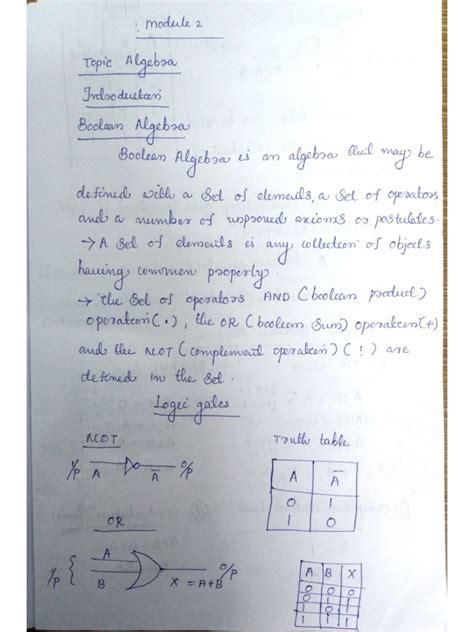 Module 2
Topic Algebra
Introduction
Boolean Algebra
Boolean Algebra is an algebra that may be
defined with a set of elements, a set of operators
and a number of unproved axioms or postulates.
→ A set of elements is any collection of objects
having common property.
→ the set of operators AND (boolean product)
operation (·), the OR (boolean sum) operation (+)
and the NOT (complement operation) (!) are
defined in the set.
Logic gates
NOT
Truth table
I/P A Ā O/P
A Ā
0 1
1 0
OR
I/P { A B X = A+B O/P
A B X
0 0 0
0 1 1
1 0 1
1 1 1